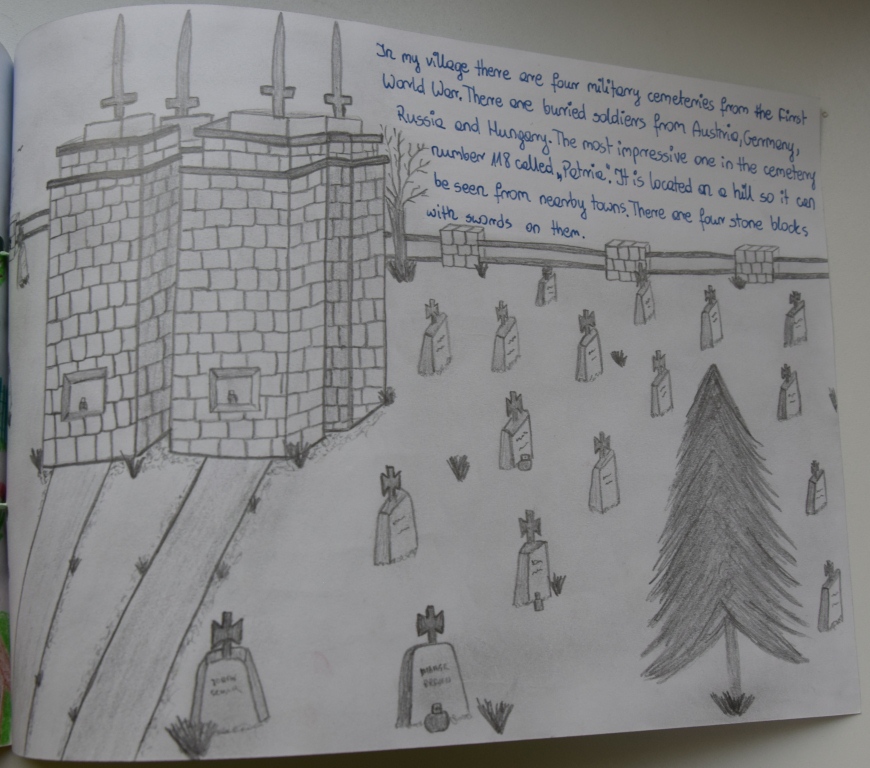 In my village there are four military cemeteries from the First
World War. There are buried soldiers from Austria, Germany,
Russia and Hungary. The most impressive one in the cemetery
number 118 called „Patria”. It is located on a hill so it can
be seen from nearby towns. There are four stone blocks
with swords on them.